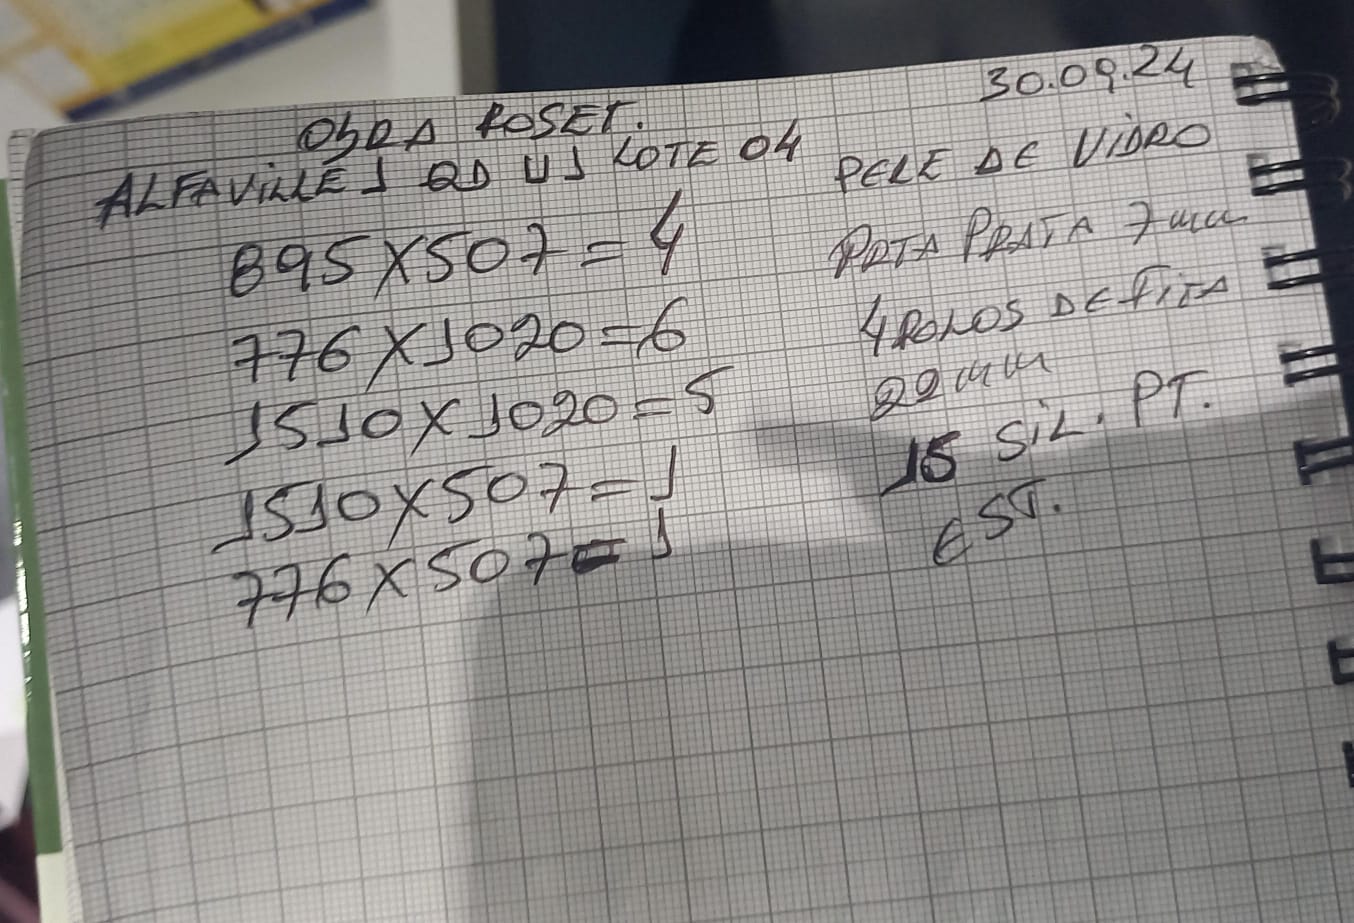 30.09.24
OBRA ROSET.
ALFAVILLE 1 QD U1 LOTE 04
895X507=4
776X1020=6
1510X1020=5
1510X507=1
776X507=1
PELE DE VIDRO
PRATA 7mm
4 ROLOS DE FITA
22mm
15 SIL. PT.
EST.